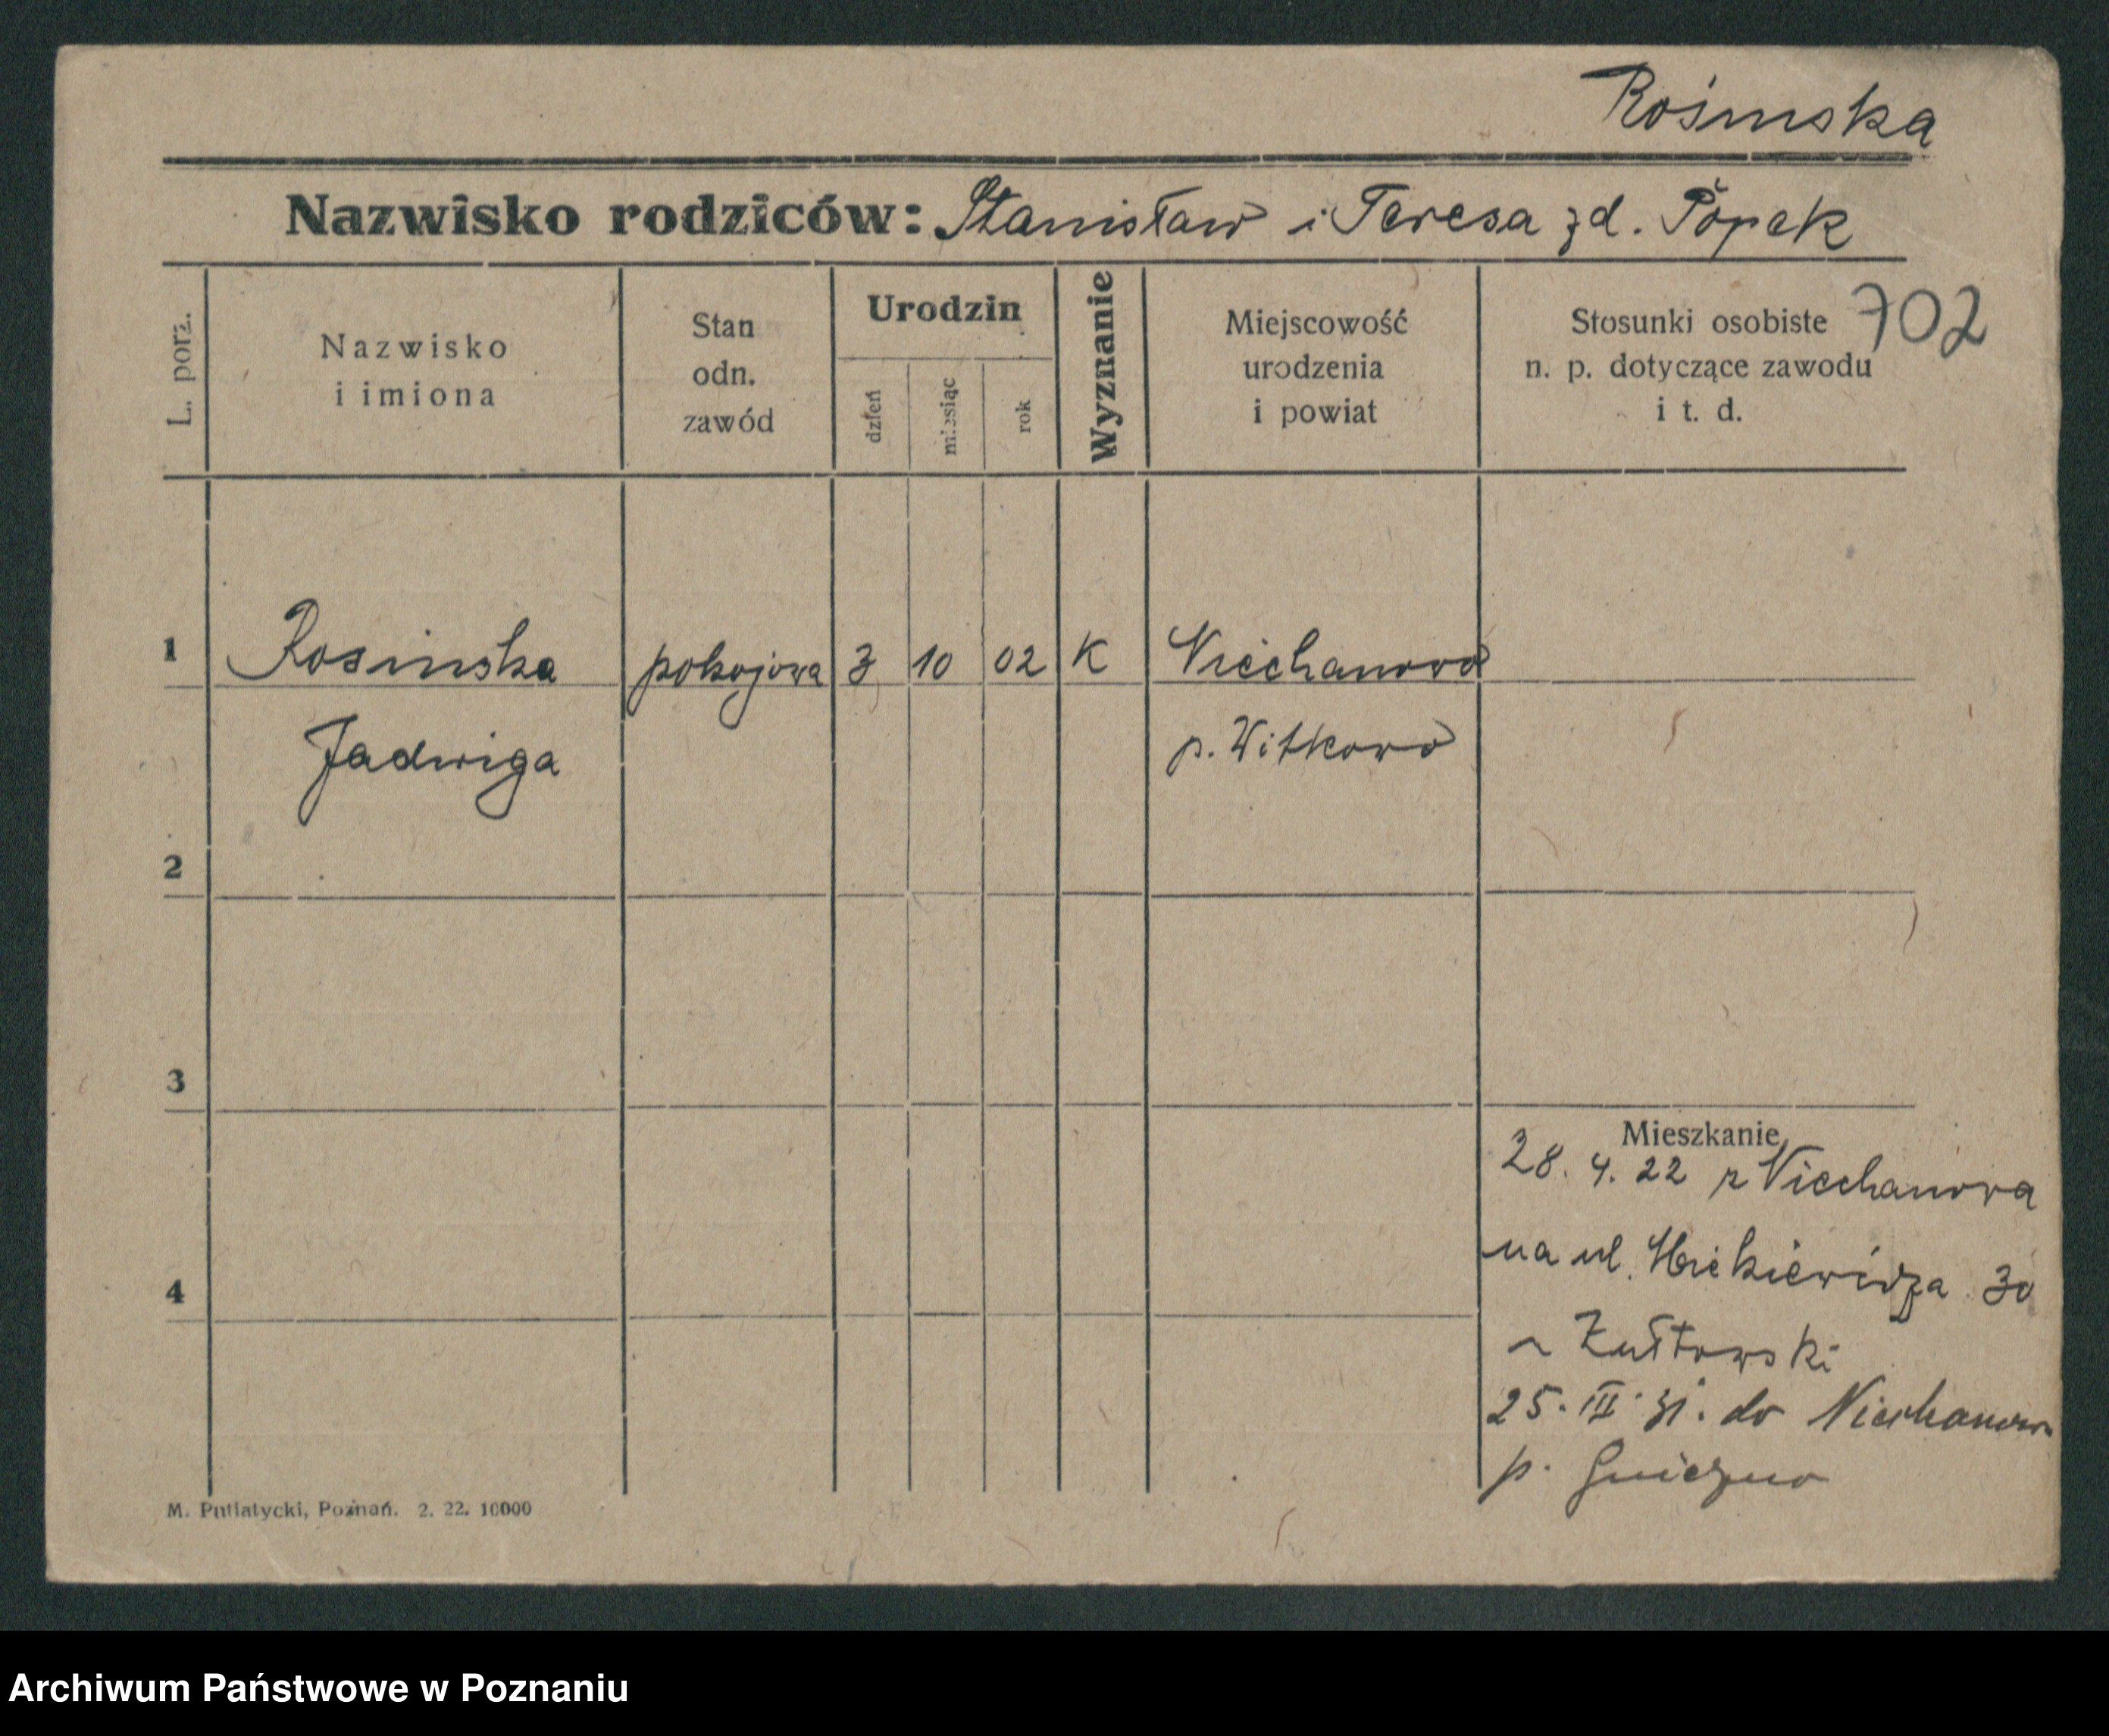 Rośinska
Nazwisko rodziców: Stanisław i Teresa zd. Popek
L. porz.
Nazwisko
i imiona
Stan
odn.
zawód
Urodzin
dzień
miesiąc
rok
Wyznanie
Miejscowość
urodzenia
i powiat
Stosunki osobiste
n. p. dotyczące zawodu
i t. d.
702
1 Rosinska pokojowa 3 10 02 K Niechanowo
Jadwiga p. Witkowo
2
3
Mieszkanie
28. 4. 22 z Niechanowa
na ul. Mickiewicza 30
Żułtowski
4
25. III. 31. do Niechanowa
p. Gniezno
M. Putiatycki, Poznań. 2. 22. 10000
Archiwum Państwowe w Poznaniu